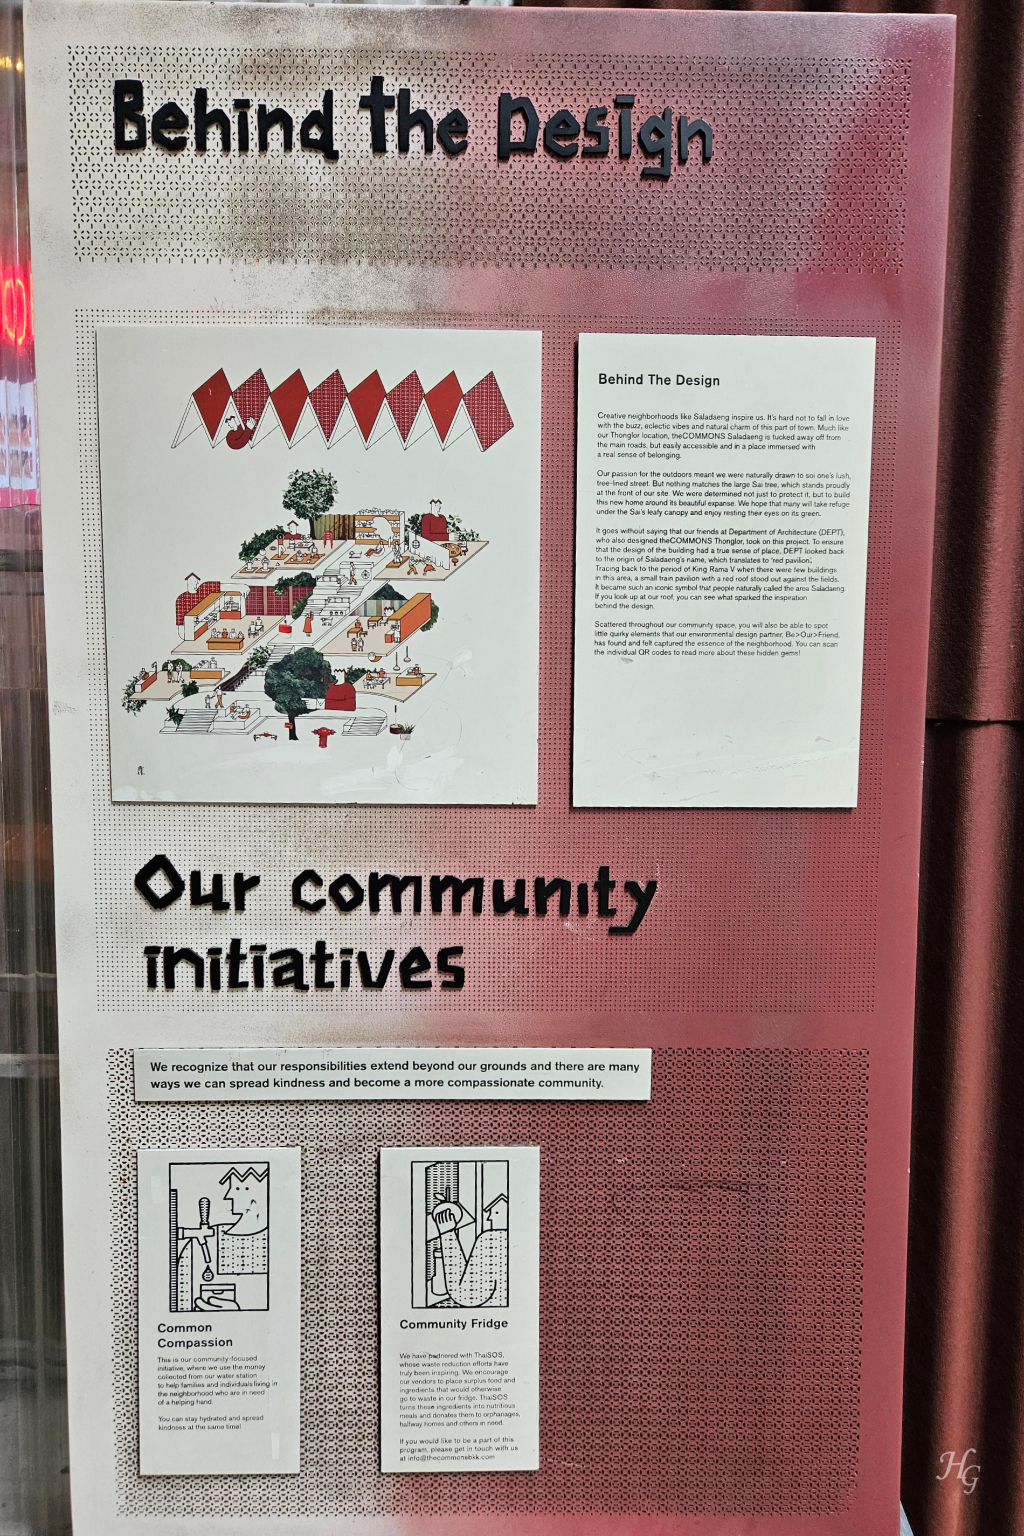 Behind the Design
Behind The Design
Creative neighborhoods like Saladaeng inspire us. It's hard not to fall in love
with the buzz, eclectic vibes and natural charm of this part of town. Much like
our Thonglor location, theCOMMONS Saladaeng is tucked away off from
the main roads, but easily accessible and in a place immersed with
a real sense of belonging.
Our passion for the outdoors meant we were naturally drawn to soi one's lush,
tree-lined street. But nothing matches the large Sai tree, which stands proudly
at the front of our site. We were determined not just to protect it, but to build
this new home around its beautiful expanse. We hope that many will take refuge
under the Sai's leafy canopy and enjoy resting their eyes on its green.
It goes without saying that our friends at Department of Architecture (DEPT),
who also designed theCOMMONS Thonglor, took on this project. To ensure
that the design of the building had a true sense of place, DEPT looked back
to the origin of Saladaeng's name, which translates to 'red pavilion'.
Tracing back to the period of King Rama V when there were few buildings
in this area, a small train pavilion with a red roof stood out against the fields.
It became such an iconic symbol that people naturally called the area Saladaeng.
If you look up at our roof, you can see what sparked the inspiration
behind the design.
Scattered throughout our community space, you will also be able to spot
little quirky elements that our environmental design partner, Be>Our>Friend,
has found and felt captured the essence of the neighborhood. You can scan
the individual QR codes to read more about these hidden gems!
Our community
initiatives
We recognize that our responsibilities extend beyond our grounds and there are many
ways we can spread kindness and become a more compassionate community.
Common
Compassion
This is our community-focused
initiative, where we use the money
collected from our water station
to help families and individuals living in
the neighborhood who are in need
of a helping hand.
You can stay hydrated and spread
kindness at the same time!
Community Fridge
We have partnered with ThaiSOS,
whose waste reduction efforts have
truly been inspiring. We encourage
our vendors to place surplus food and
ingredients that would otherwise
go to waste in our fridge. ThaiSOS
turns these ingredients into nutritious
meals and donates them to orphanages,
halfway homes and others in need.
If you would like to be a part of this
program, please get in touch with us
at info@thecommonsbkk.com
HG